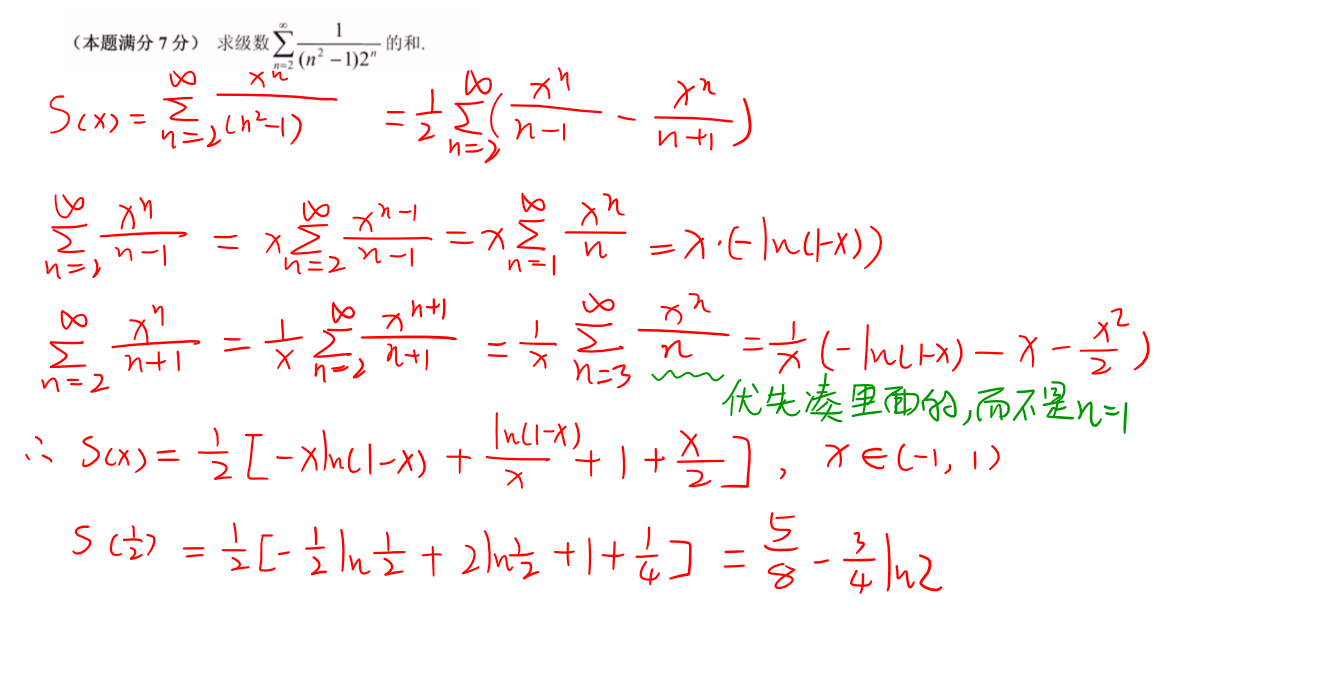 （本题满分 7 分） 求级数 $\sum_{n=2}^{\infty} \frac{1}{(n^2-1)2^n}$ 的和.
$S(x) = \sum_{n=2}^{\infty} \frac{x^n}{(n^2-1)} = \frac{1}{2} \sum_{n=2}^{\infty} \left( \frac{x^n}{n-1} - \frac{x^n}{n+1} \right)$
$\sum_{n=2}^{\infty} \frac{x^n}{n-1} = x \sum_{n=2}^{\infty} \frac{x^{n-1}}{n-1} = x \sum_{n=1}^{\infty} \frac{x^n}{n} = x \cdot (-\ln(1-x))$
$\sum_{n=2}^{\infty} \frac{x^n}{n+1} = \frac{1}{x} \sum_{n=2}^{\infty} \frac{x^{n+1}}{n+1} = \frac{1}{x} \sum_{n=3}^{\infty} \frac{x^n}{n} = \frac{1}{x} (-\ln(1-x) - x - \frac{x^2}{2})$
优先凑里面的,而不是n=1
$\therefore S(x) = \frac{1}{2} [-x\ln(1-x) + \frac{\ln(1-x)}{x} + 1 + \frac{x}{2}], x \in (-1, 1)$
$S(\frac{1}{2}) = \frac{1}{2} [-\frac{1}{2} \ln \frac{1}{2} + 2\ln \frac{1}{2} + 1 + \frac{1}{4}] = \frac{5}{8} - \frac{3}{4} \ln 2$